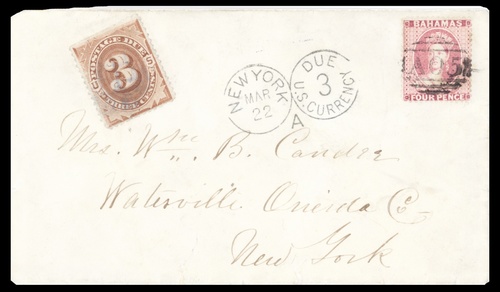 POSTAGE DUE
3
THREE CENTS
NEW YORK
MAR
22
DUE
3
U.S. CURRENCY
A
BAHAMAS
A05
FOUR PENCE
Mrs. Wm. B. Candee
Waterville Oneida Co
New York